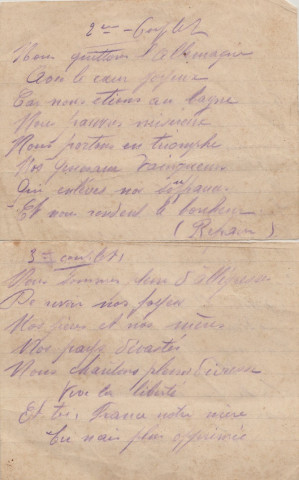 2me Couplet
Nous quittons l'Allemagne
Avec le cœur joyeux
Car nous etions au bagne
Nous pauvres
Nous portons en triomphe
Nos Vainqueurs
Qui nos
Et nous rendent le bonheur
(Refrain)
3me couplet
Nous sommes d'allégresse
De revoir nos foyers
Nos pères et nos mères
Nos pays dévastés
Nous chantons pleins d'ivresse
Vive la liberté
Et toi, France notre mère
Tu n'ais plus opprimée